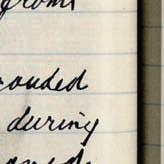 from
ouded
during